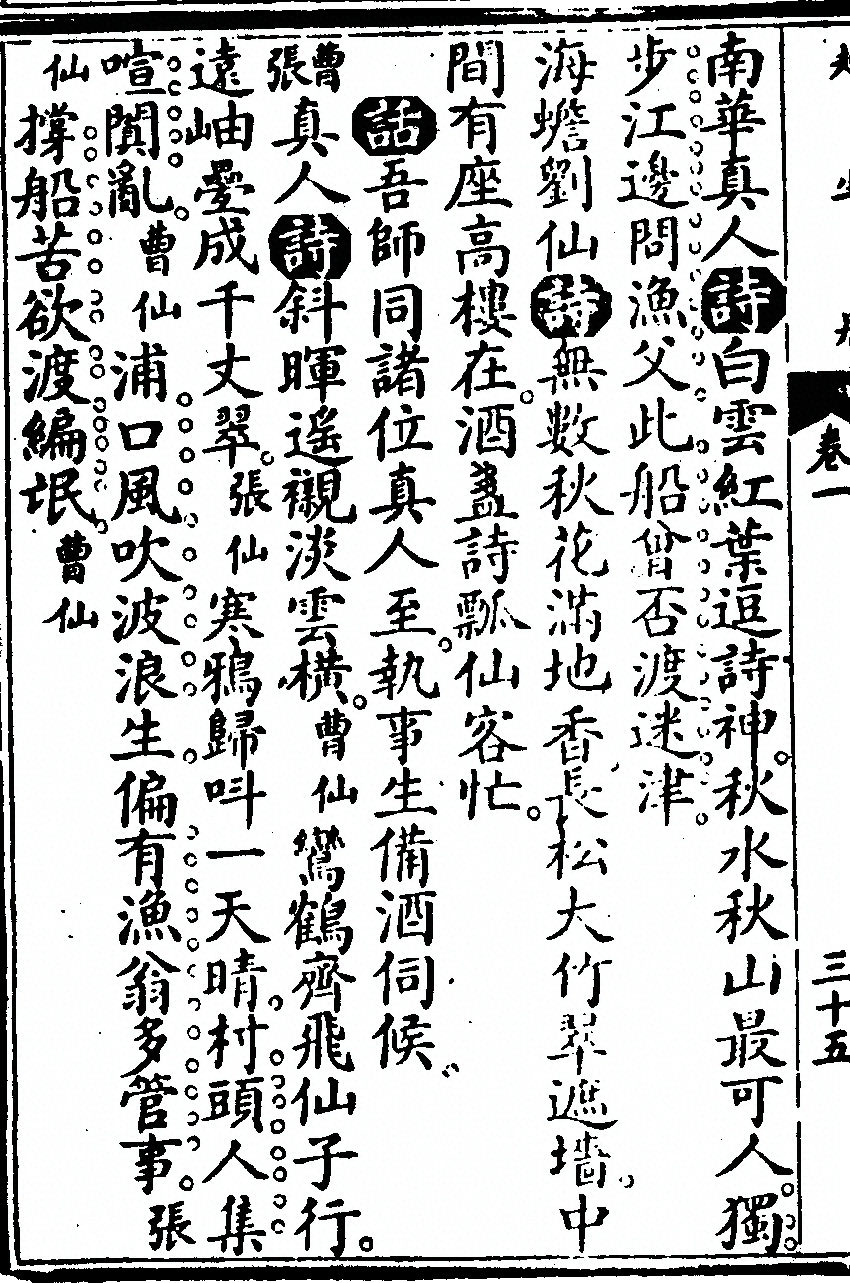 卷一
三十五
南華真人詩白雲紅葉逗詩神秋水秋山最可人獨
步江邊問漁父此船曾否渡迷津
海蟾劉仙詩無數秋花滿地香長松大竹翠遮墻中
間有座高樓在酒盞詩瓢仙客忙
話吾師同諸位真人至執事生備酒伺候
曹張真人詩斜暉遥襯淡雲橫曹仙鸞鶴齊飛仙子行
遠岫疊成千丈翠張仙寒鴉歸呌一天晴村頭人集
喧闐亂曹仙浦口風吹波浪生偏有漁翁多管事張
仙撐船苦欲渡編氓曹仙